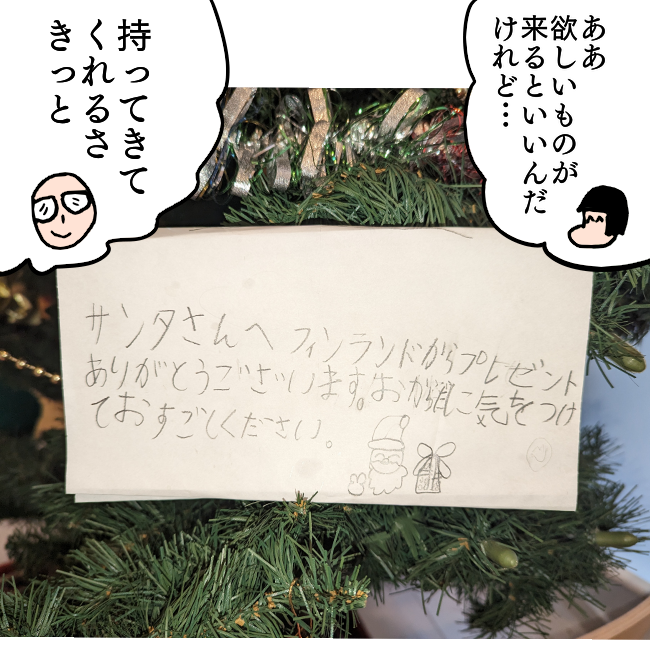 ああ
欲しいものが
来るといいんだ
けれど…
持ってきて
くれるさ
きっと
サンタさんへ フィンランドからプレゼント
ありがとうございます。おからだに気をつけ
ておすごしください。